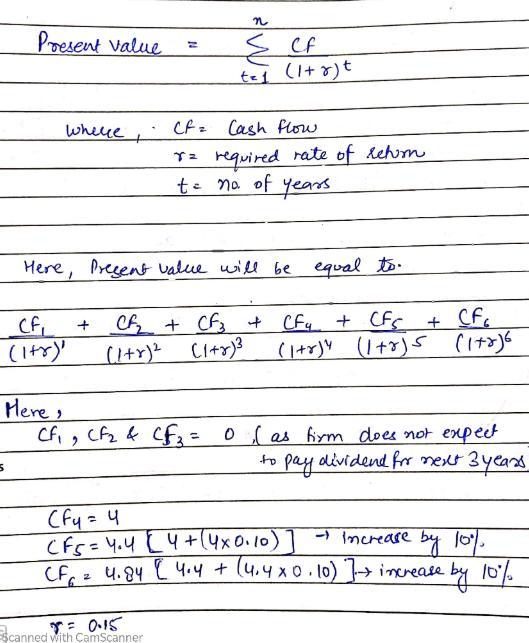 n
Present value = Σ CF
t=1 (1+r)t
where, CF = Cash flow
r = required rate of return
t = no. of years
Here, Present value will be equal to.
CF1 + CF2 + CF3 + CF4 + CF5 + CF6
(1+r)¹ (1+r)² (1+r)³ (1+r)4 (1+r)5 (1+r)6
Here,
CF1, CF2 & CF3 = 0 (as firm does not expect
to pay dividend for next 3 years
s
CF4 = 4
CF5 = 4.4 [4 + (4x0.10)] → increase by 10%.
CF6 = 4.84 [4.4 + (4.4 x 0.10)] → increase by 10%.
r = 0.15
Scanned with CamScanner